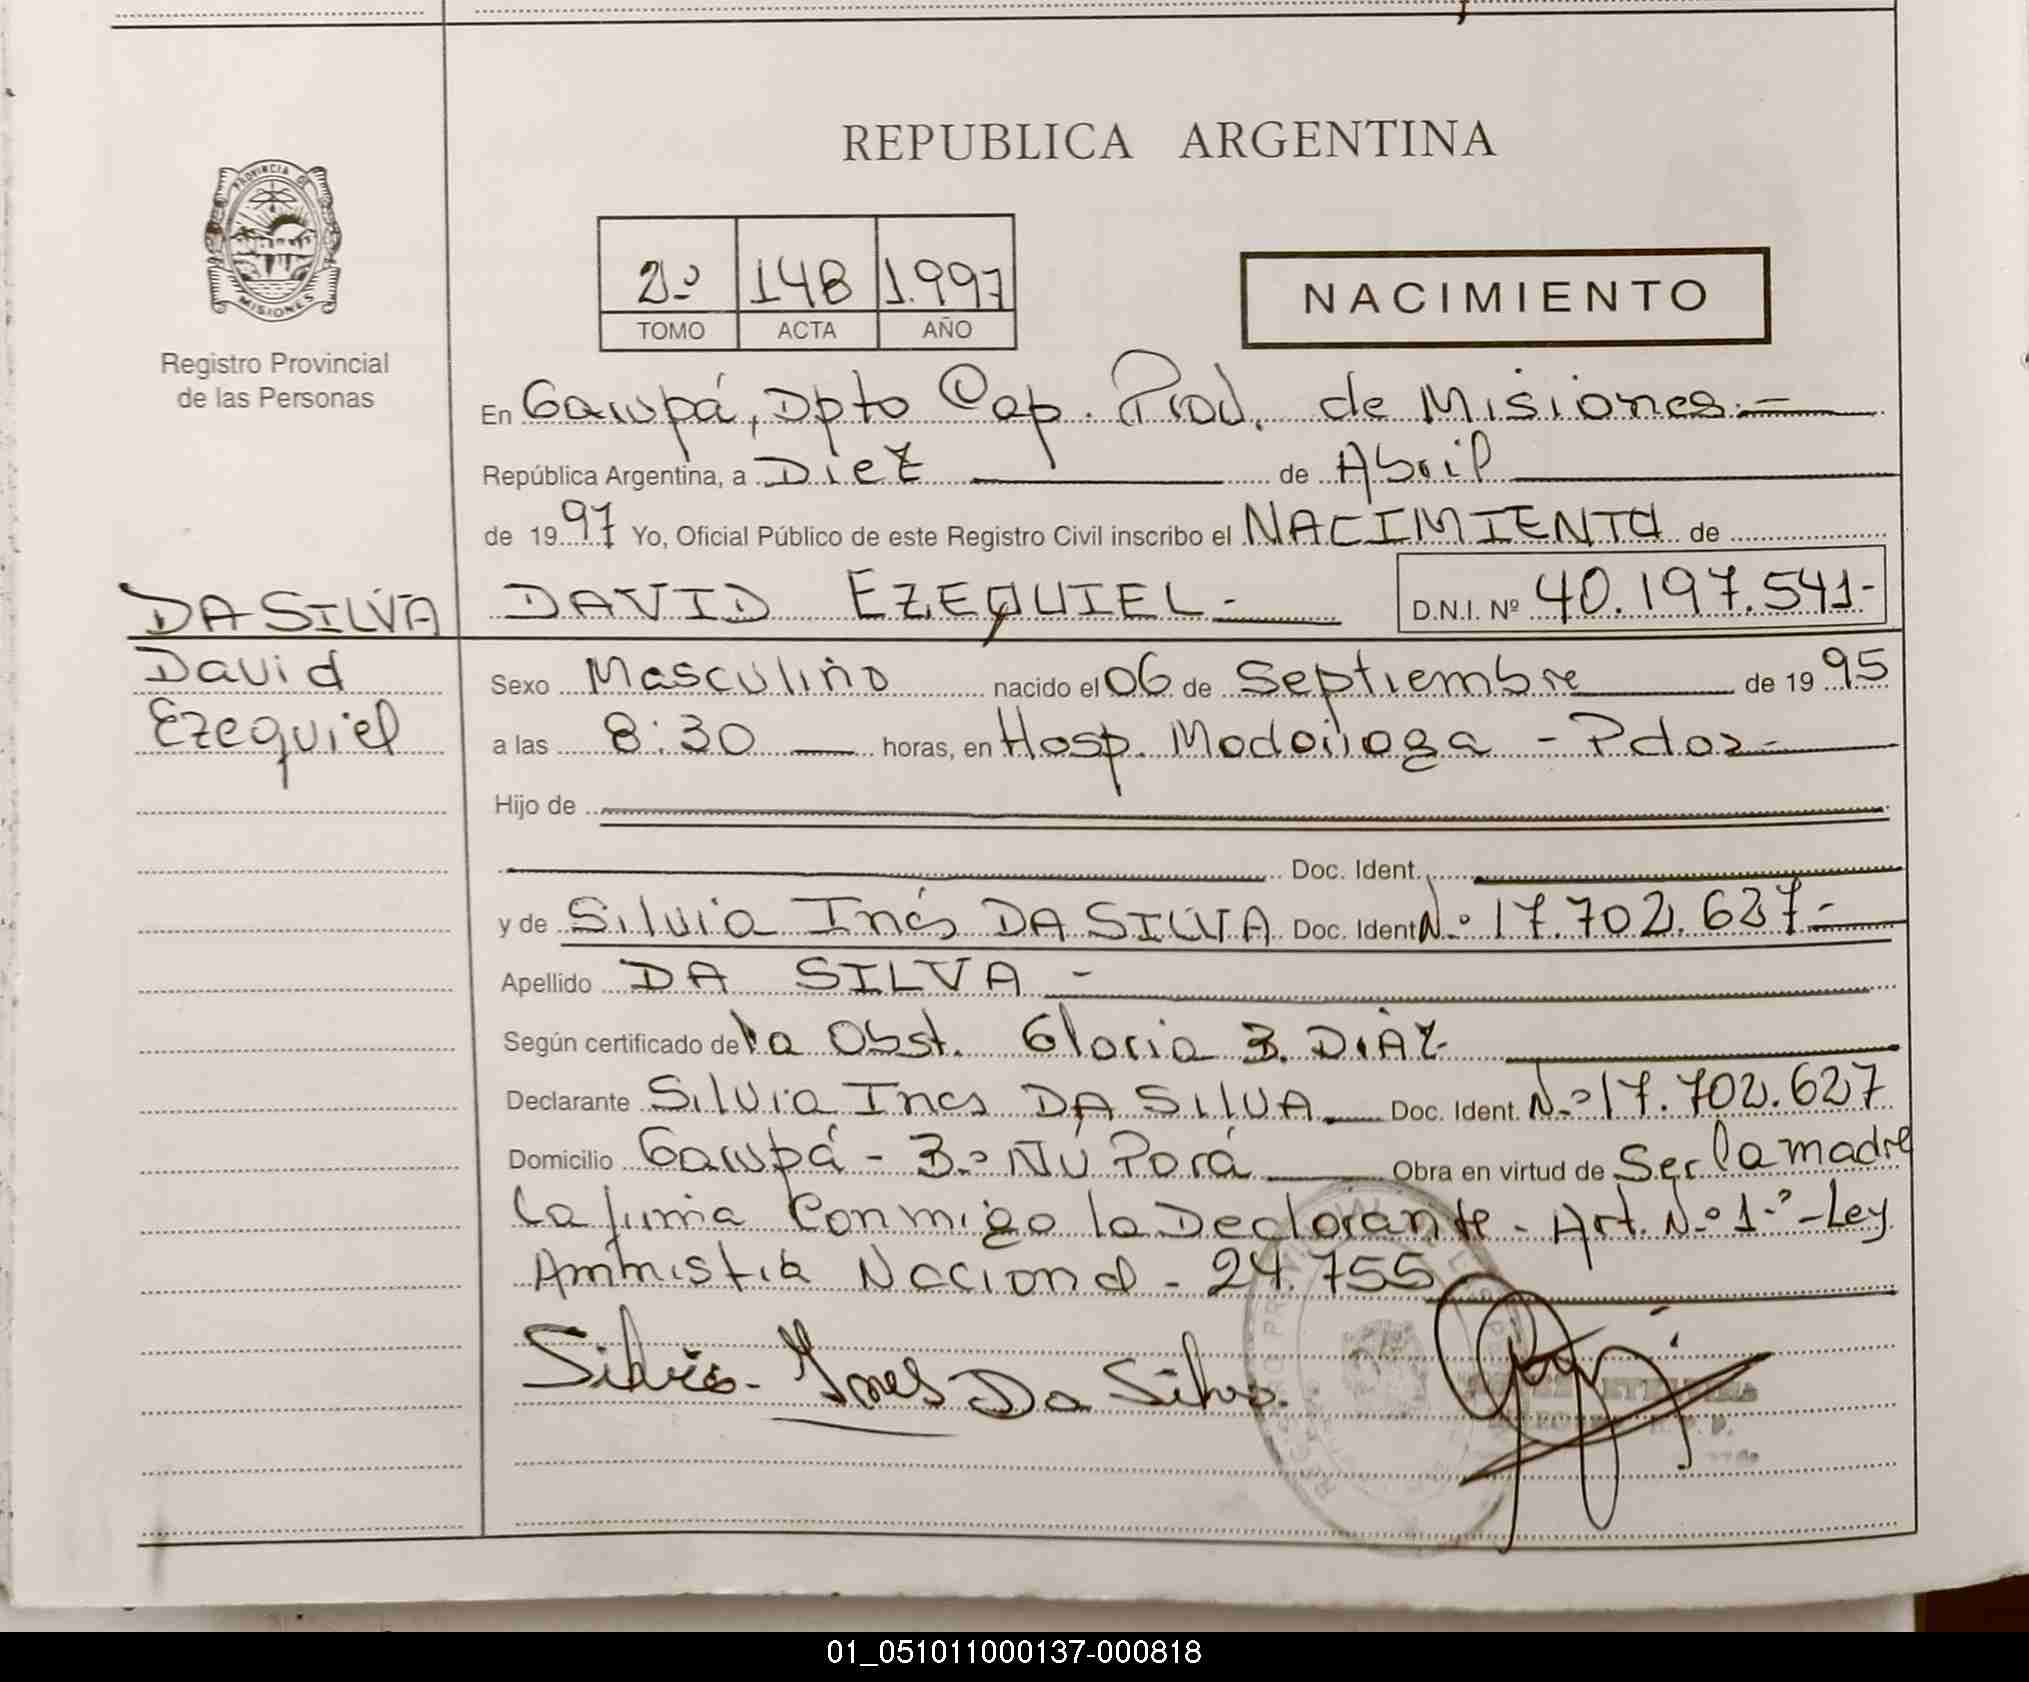 REPUBLICA ARGENTINA
PROVINCIA DE
MISIONES
Registro Provincial
de las Personas
2º 148 1.997
TOMO ACTA AÑO
NACIMIENTO
En Garupá, Dpto Cap. Prov. de Misiones.-
República Argentina, a Diez de Abril
de 1997 Yo, Oficial Público de este Registro Civil inscribo el NACIMIENTO de
DA SILVA
DAVID EZEQUIEL.- D.N.I. Nº 40.197.541-
David
Ezequiel
Sexo Masculino nacido el 06 de Septiembre de 1995
a las 8:30 horas, en Hosp. Madariaga - Pdas-
Hijo de
Doc. Ident.
y de Silvia Inés DA SILVA Doc. Ident N.º 17.702.627-
Apellido DA SILVA -
Según certificado de la Obst. Gloria B. DIAZ-
Declarante Silvia Ines DA SILVA Doc. Ident. N.º 17.702.627
Domicilio Garupá - B.º ÑU Porá Obra en virtud de Ser la madre
La firma Conmigo la Declarante - Art. N.º 1.º - Ley
Ammistia Nacional - 24.755
Silvia Ines Da Silva.
01_051011000137-000818